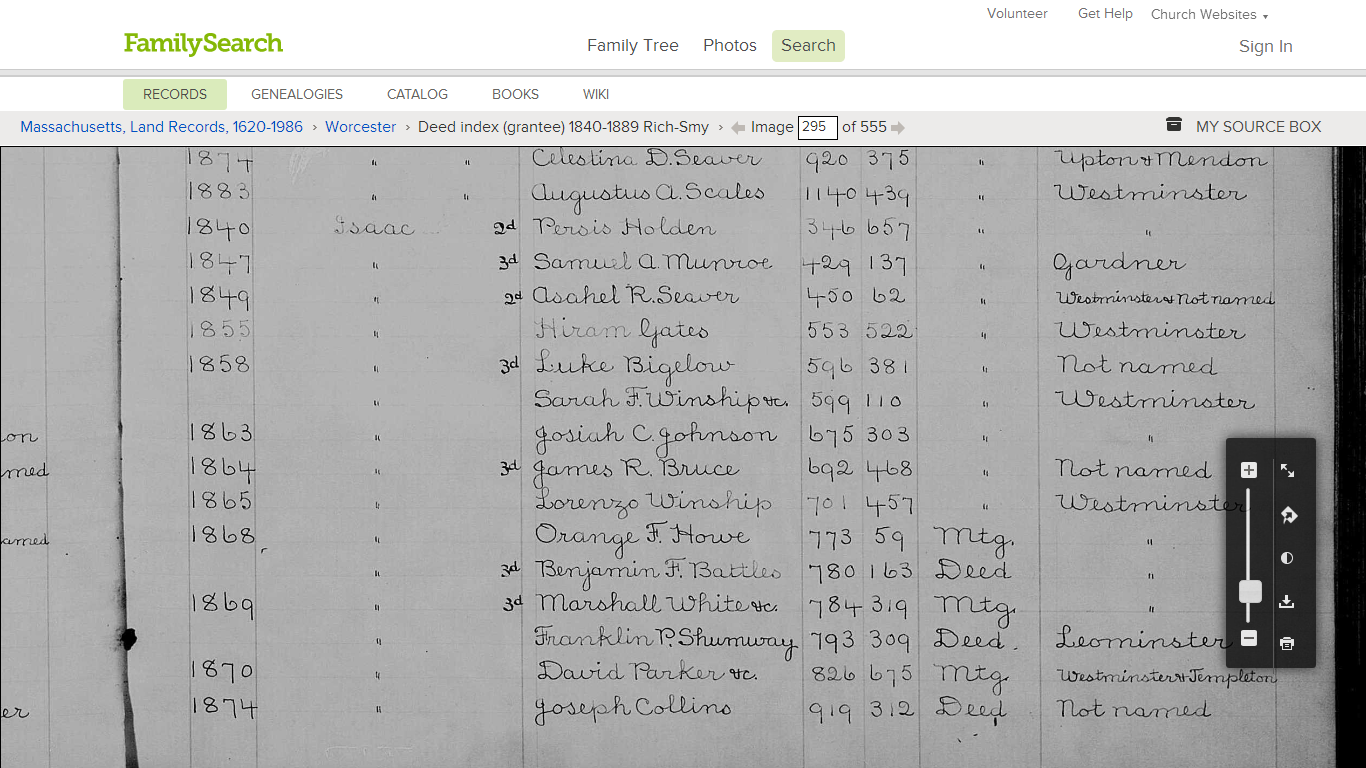 Volunteer Get Help Church Websites
FamilySearch Family Tree Photos Search Sign In
RECORDS GENEALOGIES CATALOG BOOKS WIKI
Massachusetts, Land Records, 1620-1986 › Worcester › Deed index (grantee) 1840-1889 Rich-Smy › Image 295 of 555 MY SOURCE BOX
1874 " " Celestina D. Seaver 920 375 " Upton & Mendon
1883 " " Augustus A. Scales 1140 439 " Westminster
1840 Isaac 2d Persis Holden 346 657 " "
1847 " 3d Samuel A. Munroe 429 137 " Gardner
1849 " 2d Asahel R. Seaver 450 62 " Westminster & Not named
1855 " Hiram Gates 553 522 " Westminster
1858 " 3d Luke Bigelow 596 381 " Not named
" Sarah F. Winship &c. 599 110 " Westminster
on 1863 " Josiah C. Johnson 675 303 " "
med 1864 " 3d James R. Bruce 692 468 " Not named
1865 " Lorenzo Winship 701 457 " Westminster
amed 1868 " Orange F. Howe 773 59 Mtg. "
" 3d Benjamin F. Battles 780 163 Deed "
1869 " 3d Marshall White &c. 784 319 Mtg. "
" Franklin P. Shumway 793 309 Deed. Leominster
1870 " David Parker &c. 826 675 Mtg. Westminster & Templeton
er 1874 " Joseph Collins 919 312 Deed Not named